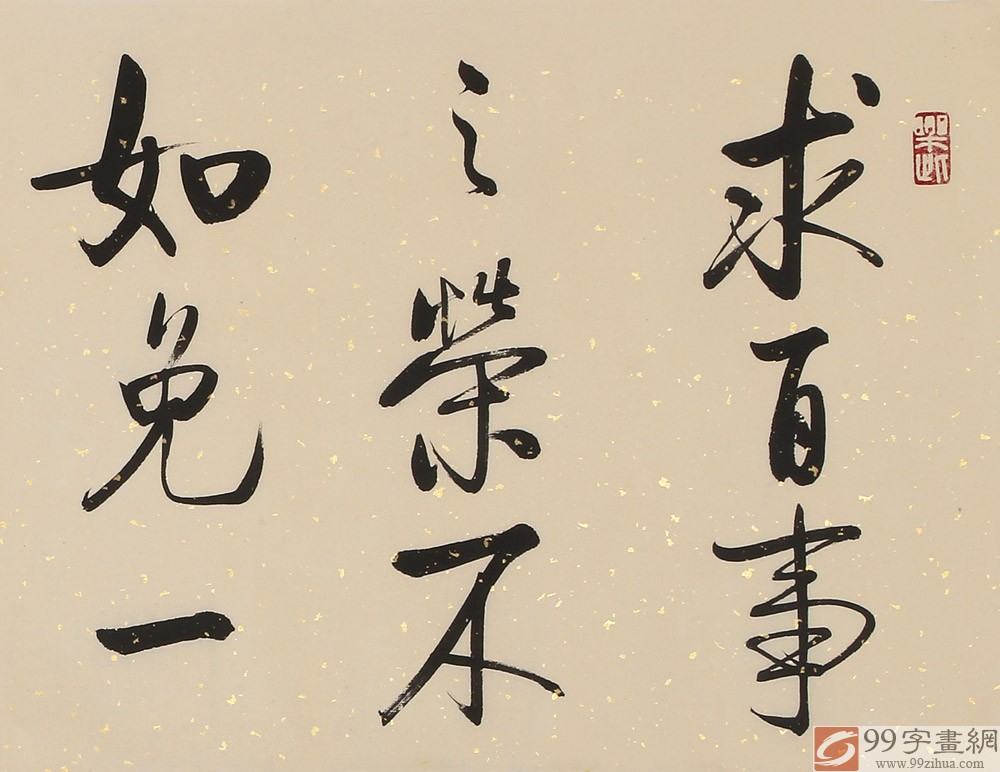 求百事
之榮不
如免一
99字畫網
www.99zihua.com